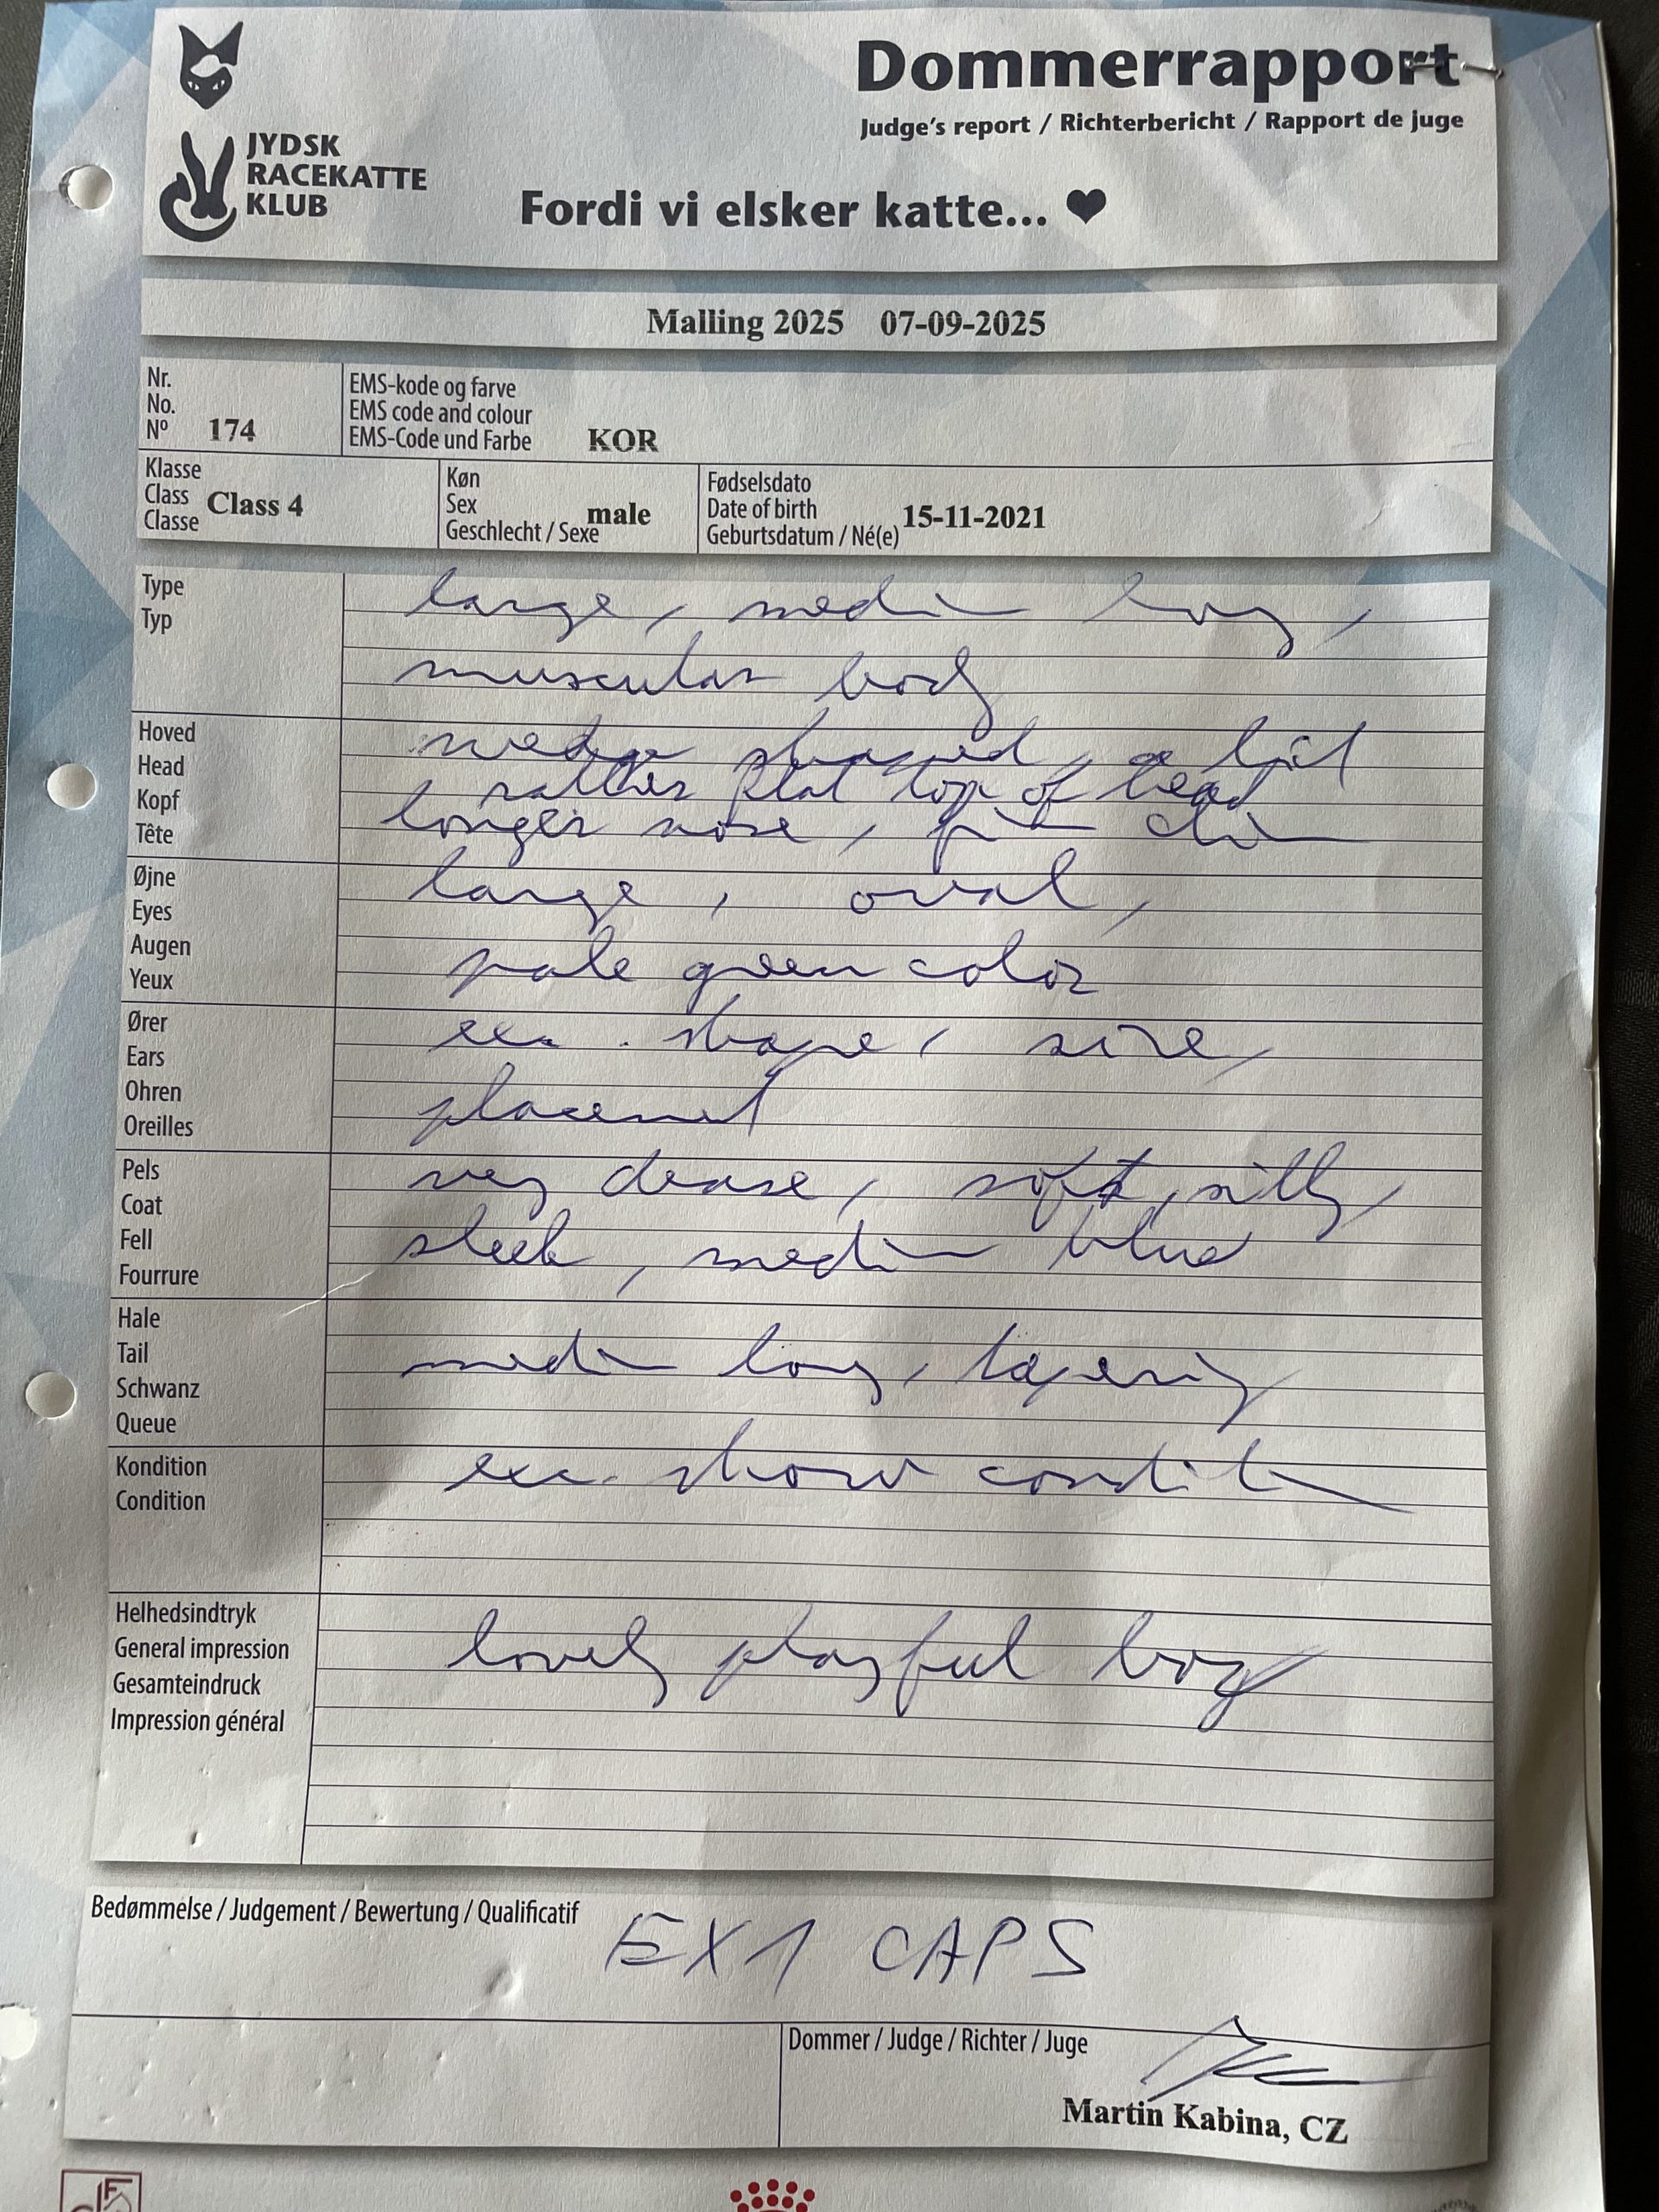 Dommerrapport
Judge's report / Richterbericht / Rapport de juge
JYDSK
RACEKATTE
KLUB
Fordi vi elsker katte... ♥
Malling 2025 07-09-2025
Nr.
No.
Nº 174
EMS-kode og farve
EMS code and colour
EMS-Code und Farbe KOR
Klasse
Class Class 4
Classe
Køn
Sex male
Geschlecht / Sexe
Fødselsdato
Date of birth 15-11-2021
Geburtsdatum / Né(e)
Type
Typ
large, medium long,
muscular body
Hoved
Head
Kopf
Tête
wedge shaped, a
rather flat top of head
longer nose, chin
Øjne
Eyes
Augen
Yeux
large, oval,
pale green color
Ører
Ears
Ohren
Oreilles
exc. shape, size,
placement
Pels
Coat
Fell
Fourrure
very dense, soft, silky,
sleek, medium blue
Hale
Tail
Schwanz
Queue
medium long, tapering
Kondition
Condition
exc. show condition
Helhedsindtryk
General impression
Gesamteindruck
Impression général
lovely playful boy
Bedømmelse / Judgement / Bewertung / Qualificatif
EX1 CAPS
Dommer / Judge / Richter / Juge
Martin Kabina, CZ